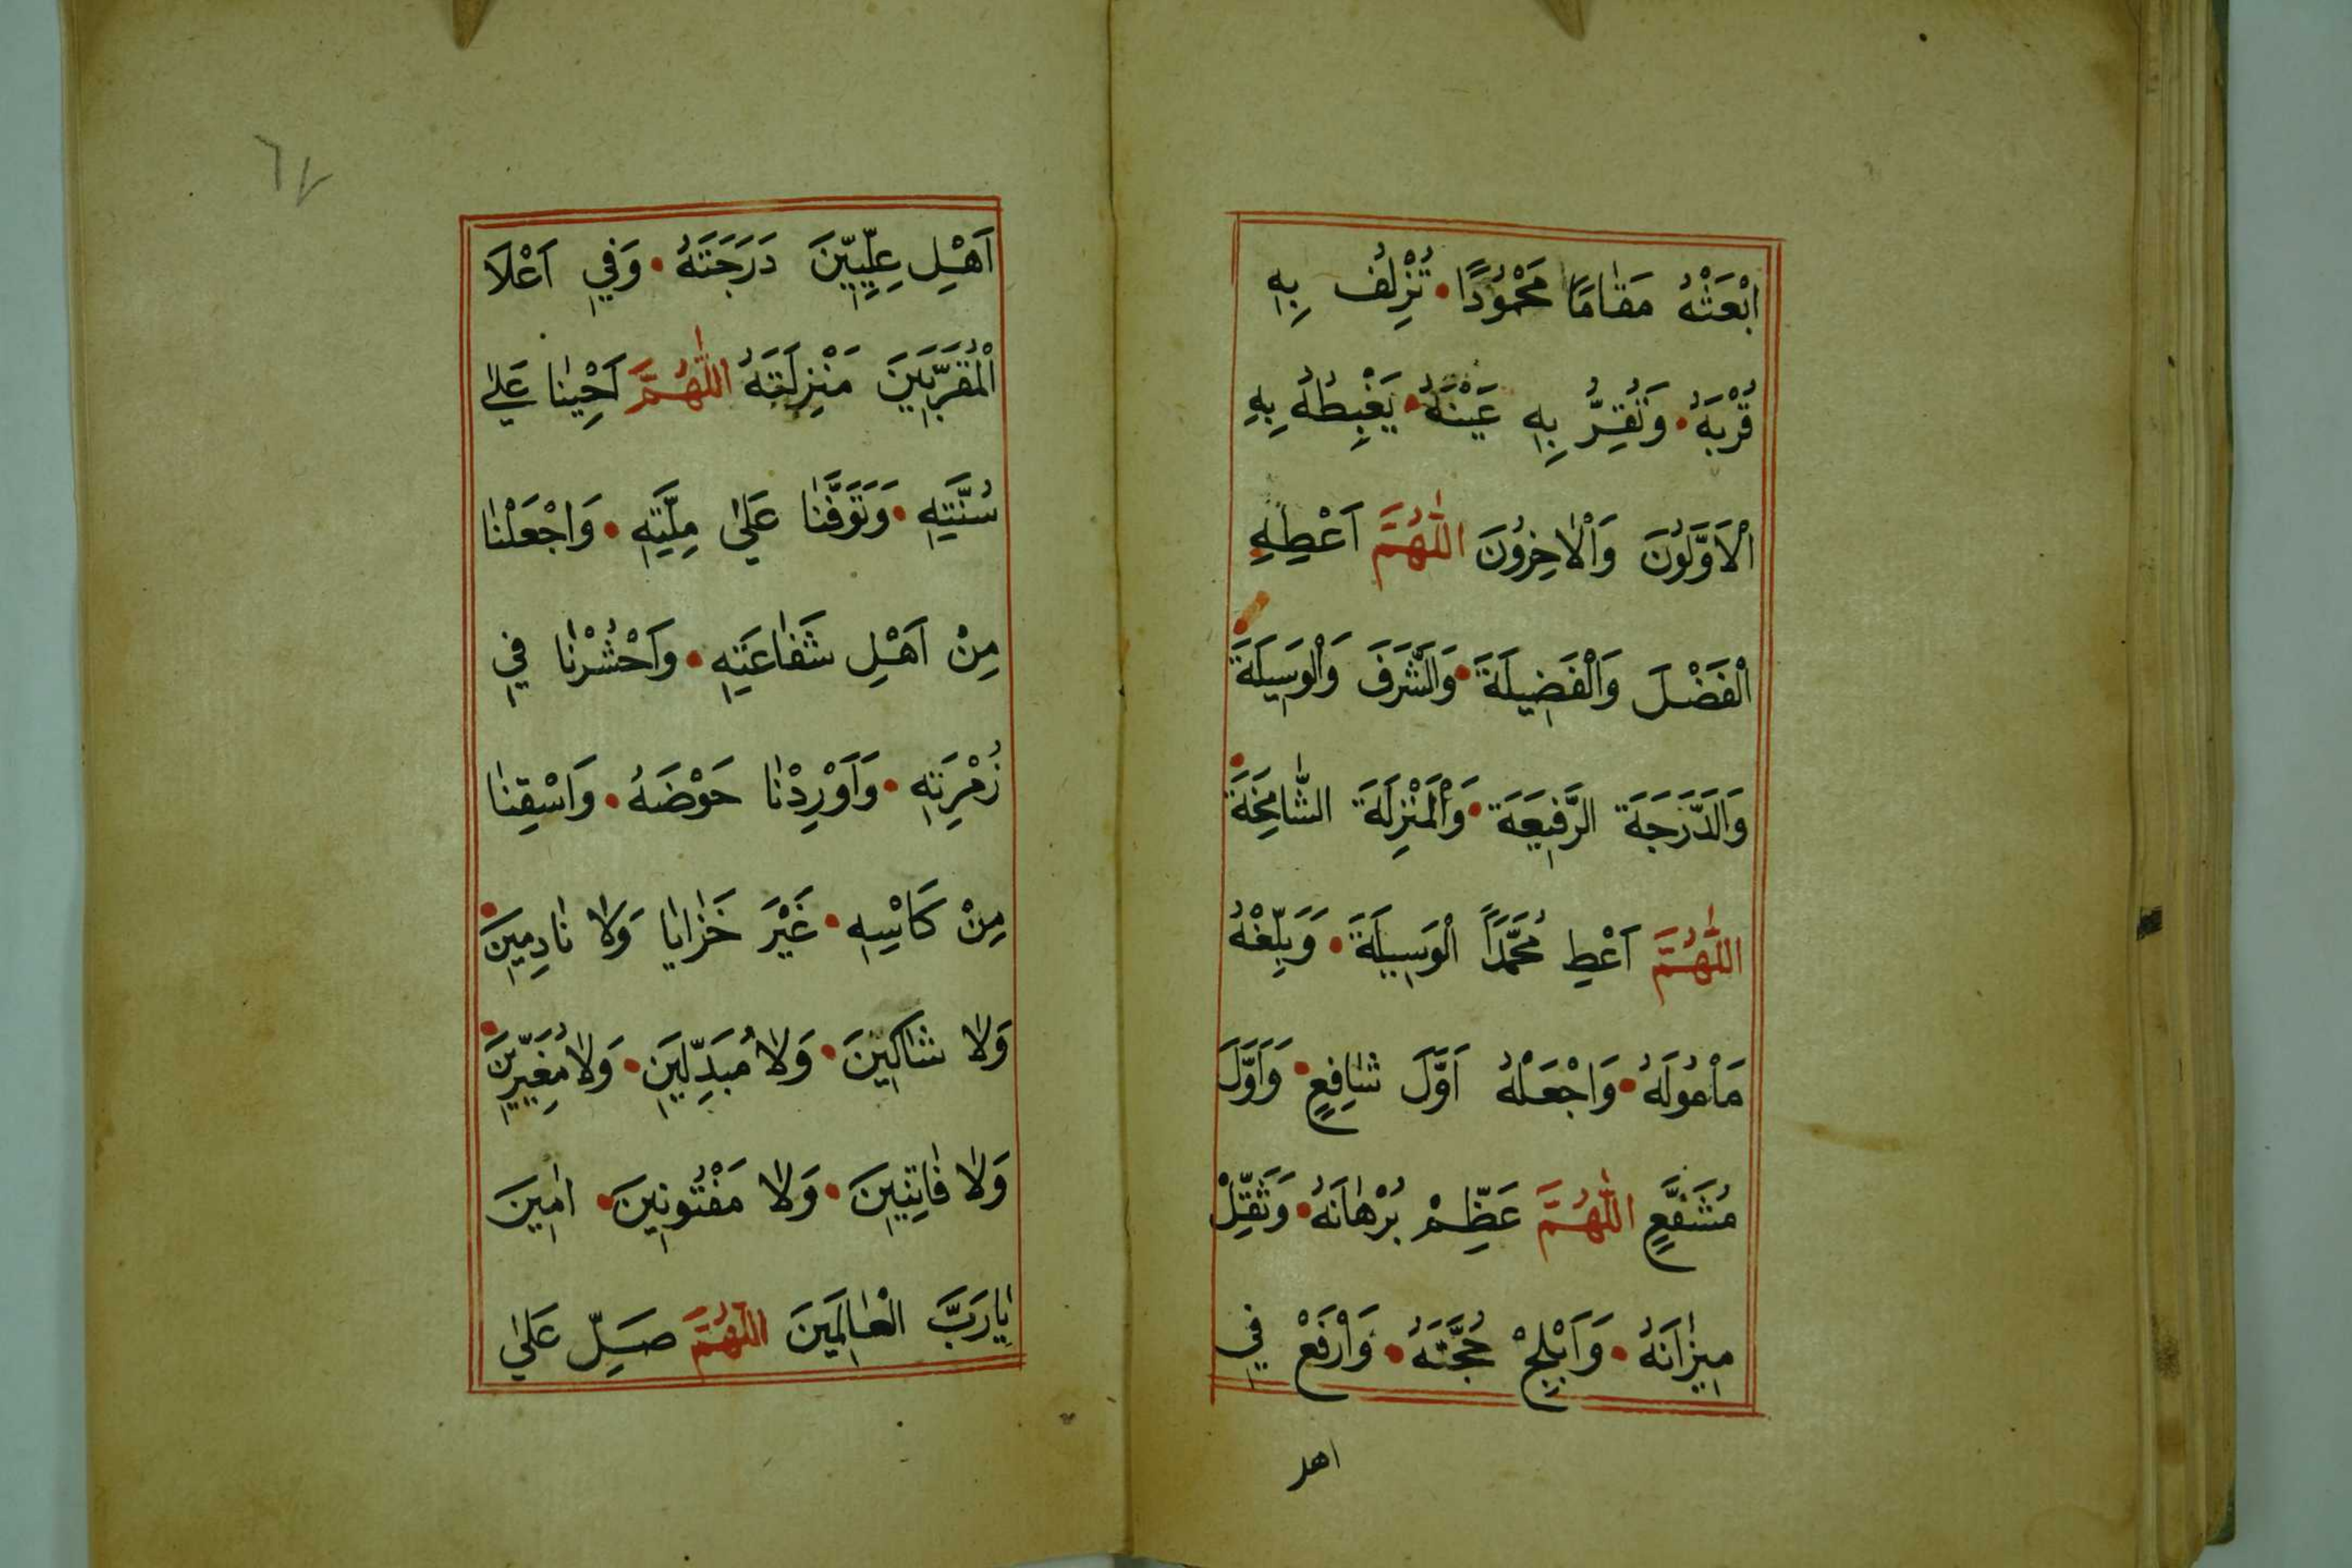 ابْعَثْهُ مَقَامًا مَحْمُودًا • تُزْلِفُ بِهِ
قُرْبَهُ • وَتُقِرُّ بِهِ عَيْنَهُ • يَغْبِطُهُ بِهِ
اْلاَوَّلُونَ وَاْلاٰخِرُونَ اللّٰهُمَّ اَعْطِهِ •
الْفَضْلَ وَالْفَضِيلَةَ • وَالشَّرَفَ وَالْوَسِيلَةَ •
وَالدَّرَجَةَ الرَّفِيعَةَ • وَالْمَنْزِلَةَ الشَّامِخَةَ •
اللّٰهُمَّ اَعْطِ مُحَمَّدًا الْوَسِيلَةَ • وَبَلِّغْهُ
مَاْمُولَهُ • وَاجْعَلْهُ اَوَّلَ شَافِعٍ • وَاَوَّلَ
مُشَفَّعٍ اللّٰهُمَّ عَظِّمْ بُرْهَانَهُ • وَثَقِّلْ
مِيزَانَهُ • وَاَبْلِجْ حُجَّتَهُ • وَارْفَعْ فِي
اهل
٦٧
اَهْلِ عِلِّيِّينَ دَرَجَتَهُ • وَفِي اَعْلَا
الْمُقَرَّبِينَ مَنْزِلَتَهُ اللّٰهُمَّ اَحْيِنَا عَلٰى
سُنَّتِهِ • وَتَوَفَّنَا عَلٰى مِلَّتِهِ • وَاجْعَلْنَا
مِنْ اَهْلِ شَفَاعَتِهِ • وَاحْشُرْنَا فِي
زُمْرَتِهِ • وَاَوْرِدْنَا حَوْضَهُ • وَاسْقِنَا
مِنْ كَاْسِهِ • غَيْرَ خَزَايَا وَلَا نَادِمِينَ •
وَلَا شَاكِّينَ • وَلَا مُبَدِّلِينَ • وَلَا مُغَيِّرِينَ •
وَلَا فَاتِنِينَ • وَلَا مَفْتُونِينَ • اٰمِينَ
يَارَبَّ الْعَالَمِينَ اللّٰهُمَّ صَلِّ عَلٰى